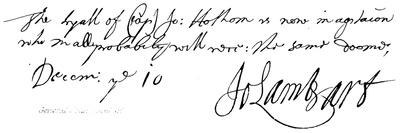 The tryall of Capt Jo: Hothom is now in agitacion
who in all probability will receive the same doome,
Decem: ye 10
Jo Lambart